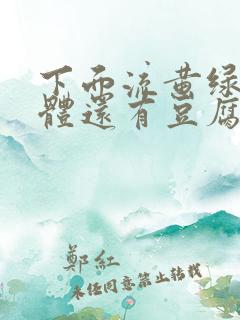 下而流黄绿
體還有豆腐
鄭紅
未经同意禁止转载